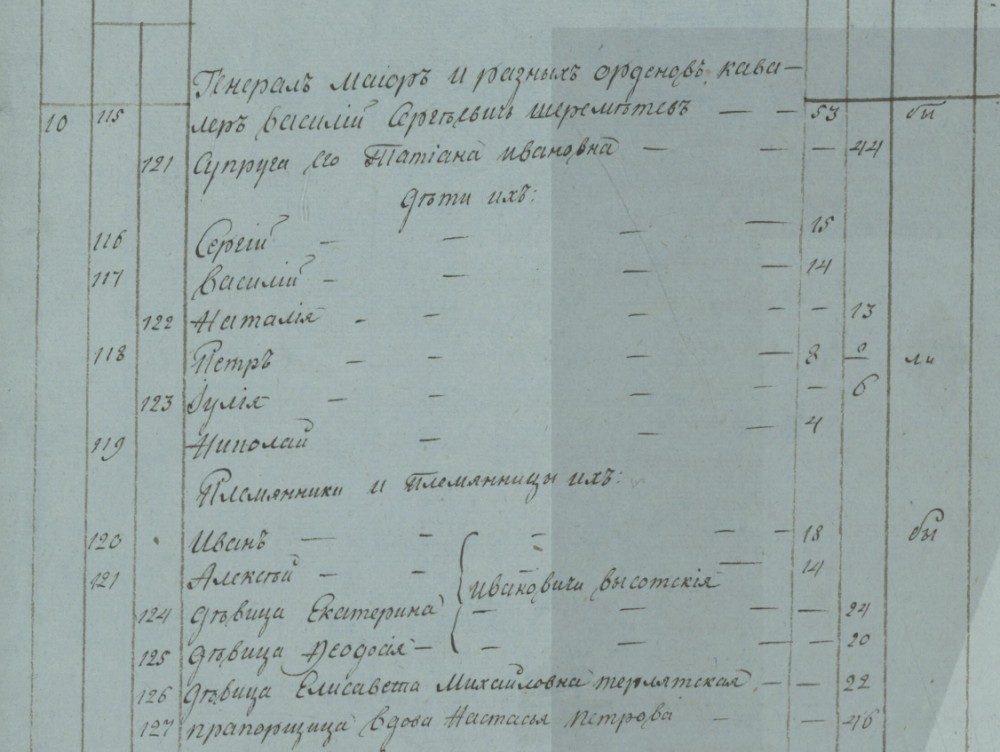 Генералъ маіоръ и разныхъ орденовъ кава—
10 115 леръ василій Сергѣевичь шереметевъ — — 53 бы
121 супруга его Татіана ивановна — — — 44
дѣти ихъ:
116 Сергій — — — — 15
117 василій — — — — 14
122 Наталія — — — — — 13
118 Петръ — — — — 8 ли
123 Іулія — — — — — 6
119 Николай — — — 4
Племянники и племянницы ихъ:
120 Иванъ — — — — — 18 бы
121 Алексѣй — — — — 14
ивановичи высотскія
124 дѣвица Екатерина — — — — 24
125 дѣвица Ѳеодосія — — — — — 20
126 дѣвица Елисавета Михайловна терлятская — — 22
127 прапорщица вдова Настасья петрова — — 46